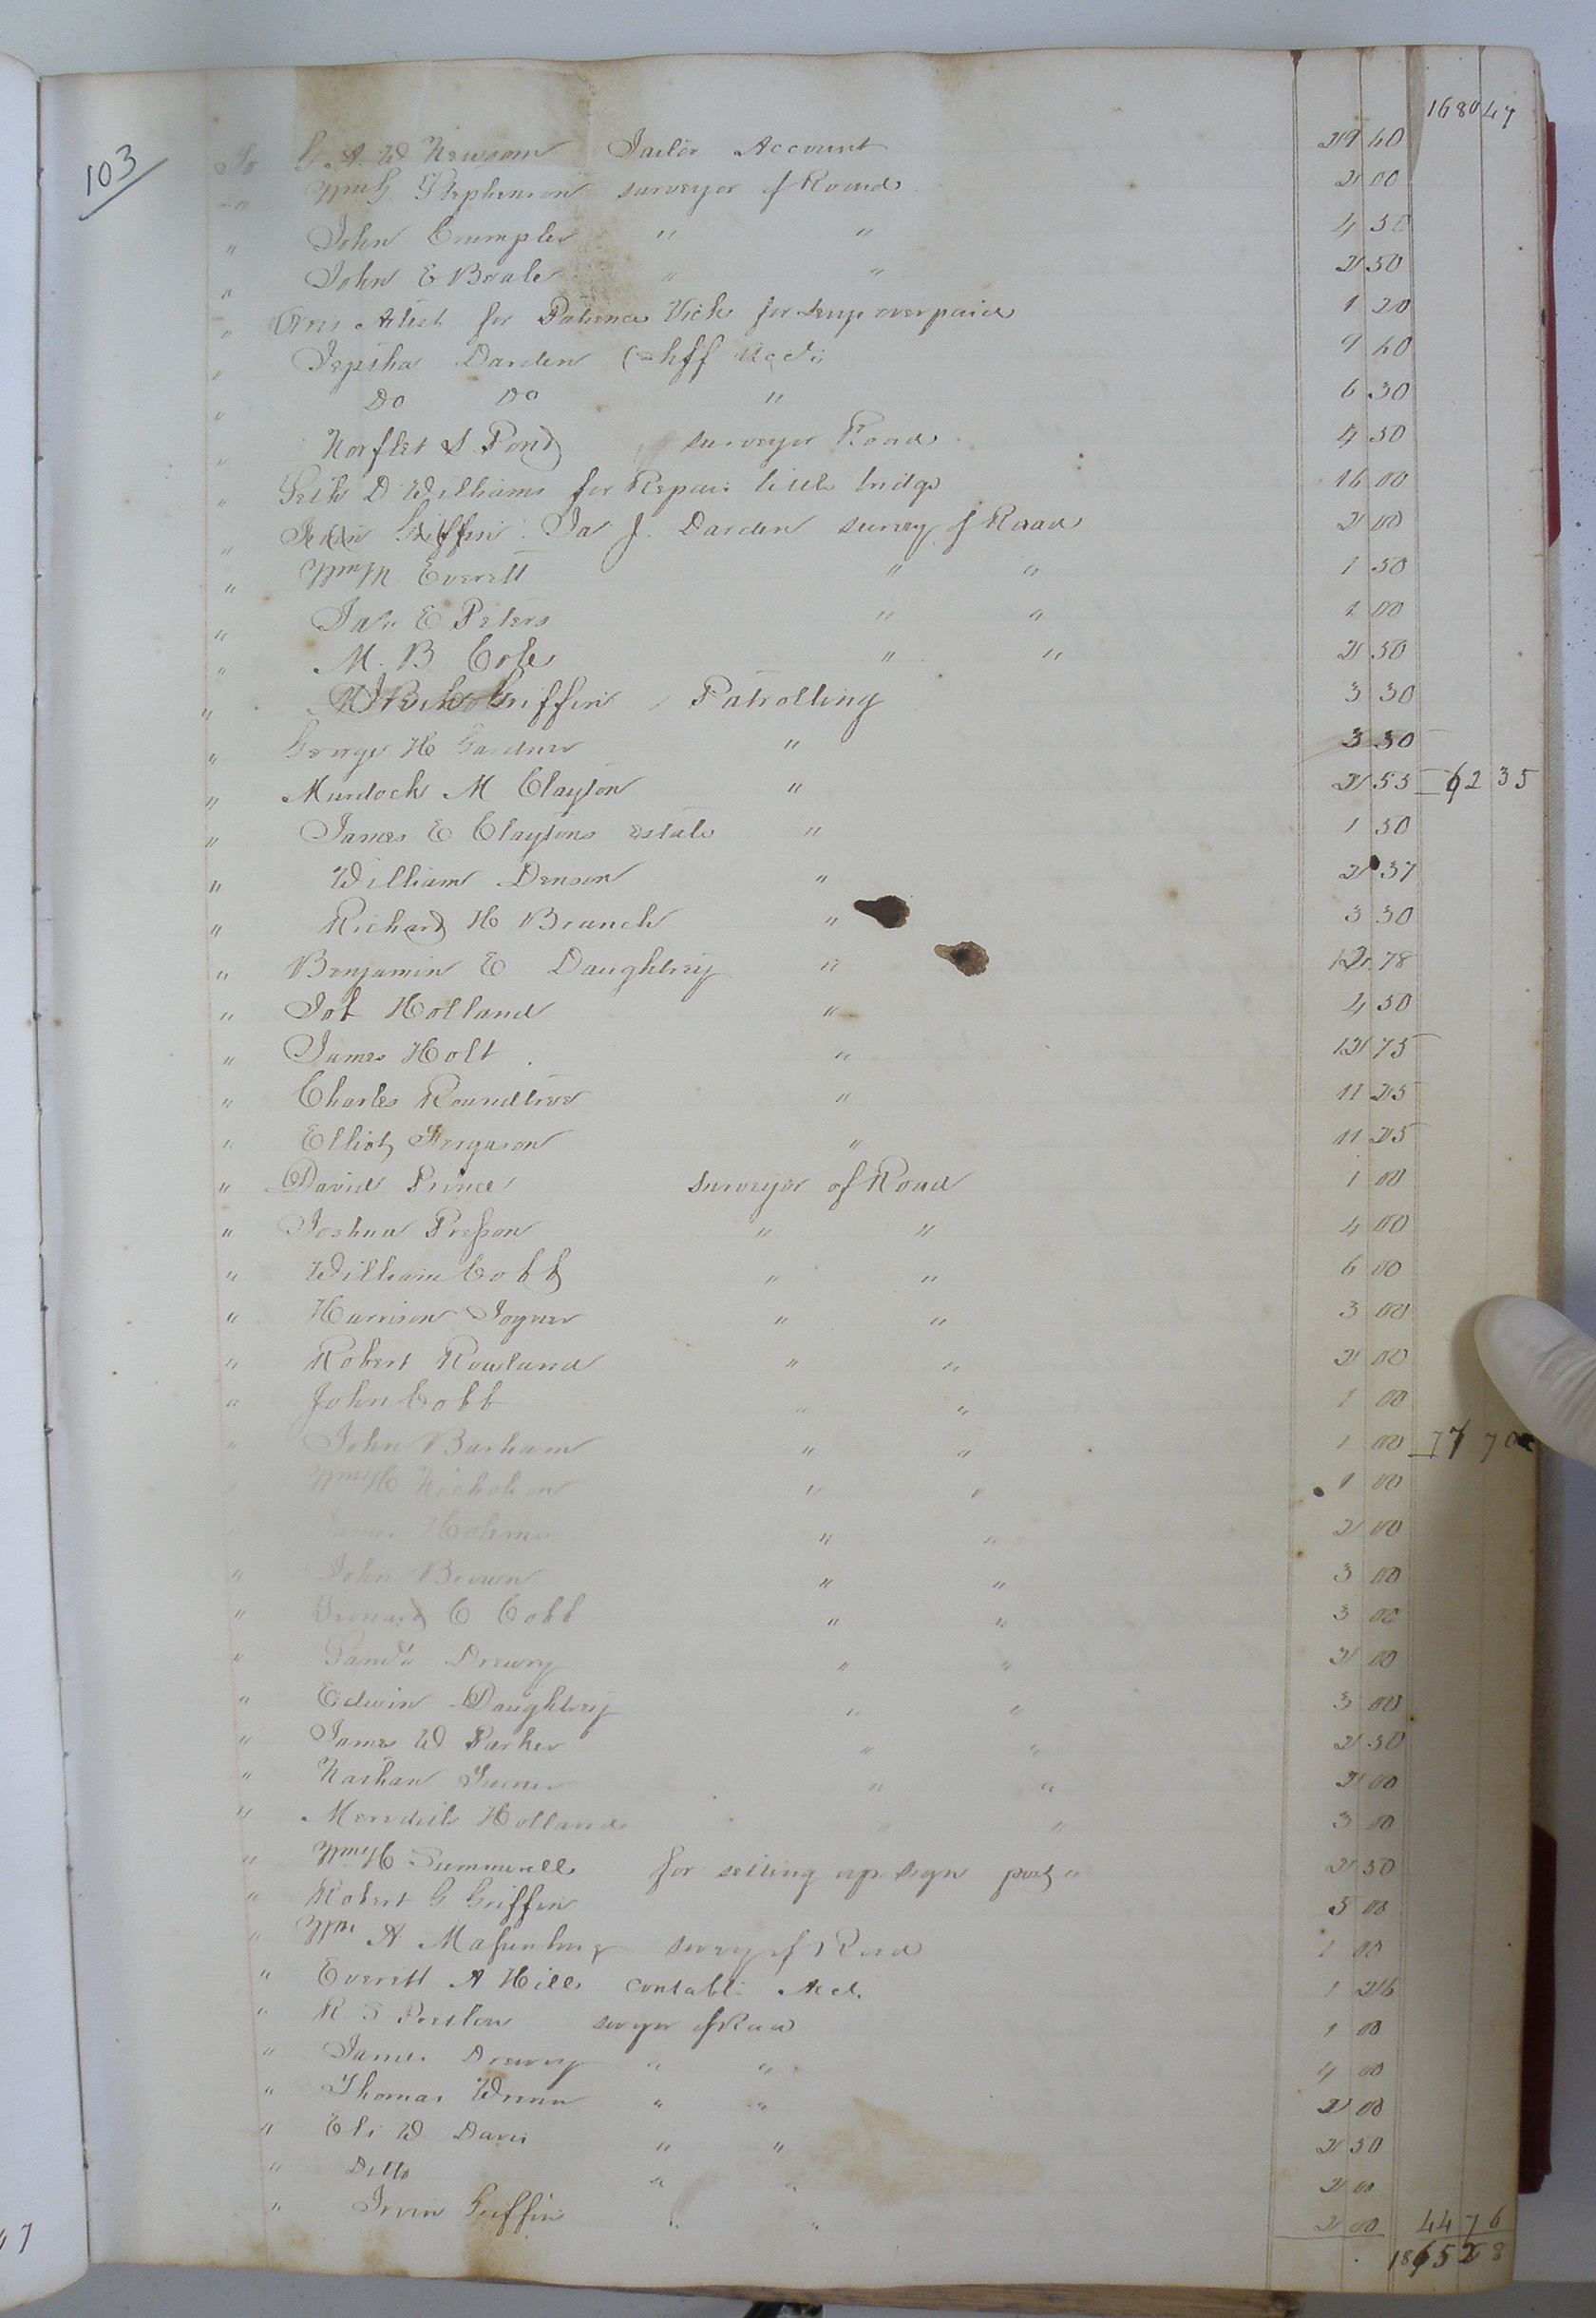 1680 47
103
To G A W Newsom Jailor Account 29 40
" Wm G. Stephenson surveyor of Road 2 00
" John Crumpler " " 4 50
" John E Beale " " 2 50
" Artist for Patience Vick for overpaid 1 20
" Jepsha Darden Shff Acct 9 40
" Do Do " 6 30
" Norflet S. Pond surveyor Road 4 50
" Seth D Williams for Repair little bridge 16 00
" Griffin Ja J. Darden survey of Road 2 00
" Wm M. Everett " " 1 50
" Jas E Peters " " 1 00
" M. B Cole " " 2 50
" Griffin Patrolling 3 30
" George H Gardner " 3 30
" Murdock M Clayton " 2 55 62 35
" James E Claytons Estate " 1 50
" William Denson " 2 37
" Richard H Branch " 3 30
" Benjamin E Daughtrey " 12 78
" Job Holland " 4 50
" James Holt " 12 75
" Charles Roundtree " 11 25
" Elliot Ferguson " 11 25
" David Prince surveyor of Road 1 00
" Joshua Presson " " 4 00
" William Cobb " " 6 00
" Harrison Joyner " " 3 00
" Robert Rowland " " 2 00
" John Cobb " " 1 00
" John Barham " " 1 00 77 70
" Wm H Nicholson " " 1 00
" James Holeman " " 2 00
" John Brown " " 3 00
" C Cobb " " 3 00
" Saml Drewry " " 2 00
" Edwin Daughtrey " " 3 00
" James W Parker " " 2 50
" Nathan Turner " " 2 00
" Meredith Holland " " 3 00
" Wm H Summerell for setting up sign post " 2 50
" Robert G Griffin 5 00
" Wm A Massenburg survey of Road 1 00
" Everitt A Hill constabl Act. 1 26
" R. S. Pretlow surveyor of Road 1 00
" James Drewry " " 4 00
" Thomas Wrenn " " 2 00
" Eli W Davis " " 2 50
" Ditto " " 2 00
" Irvin Griffin " " 2 00 44 76
1865 28